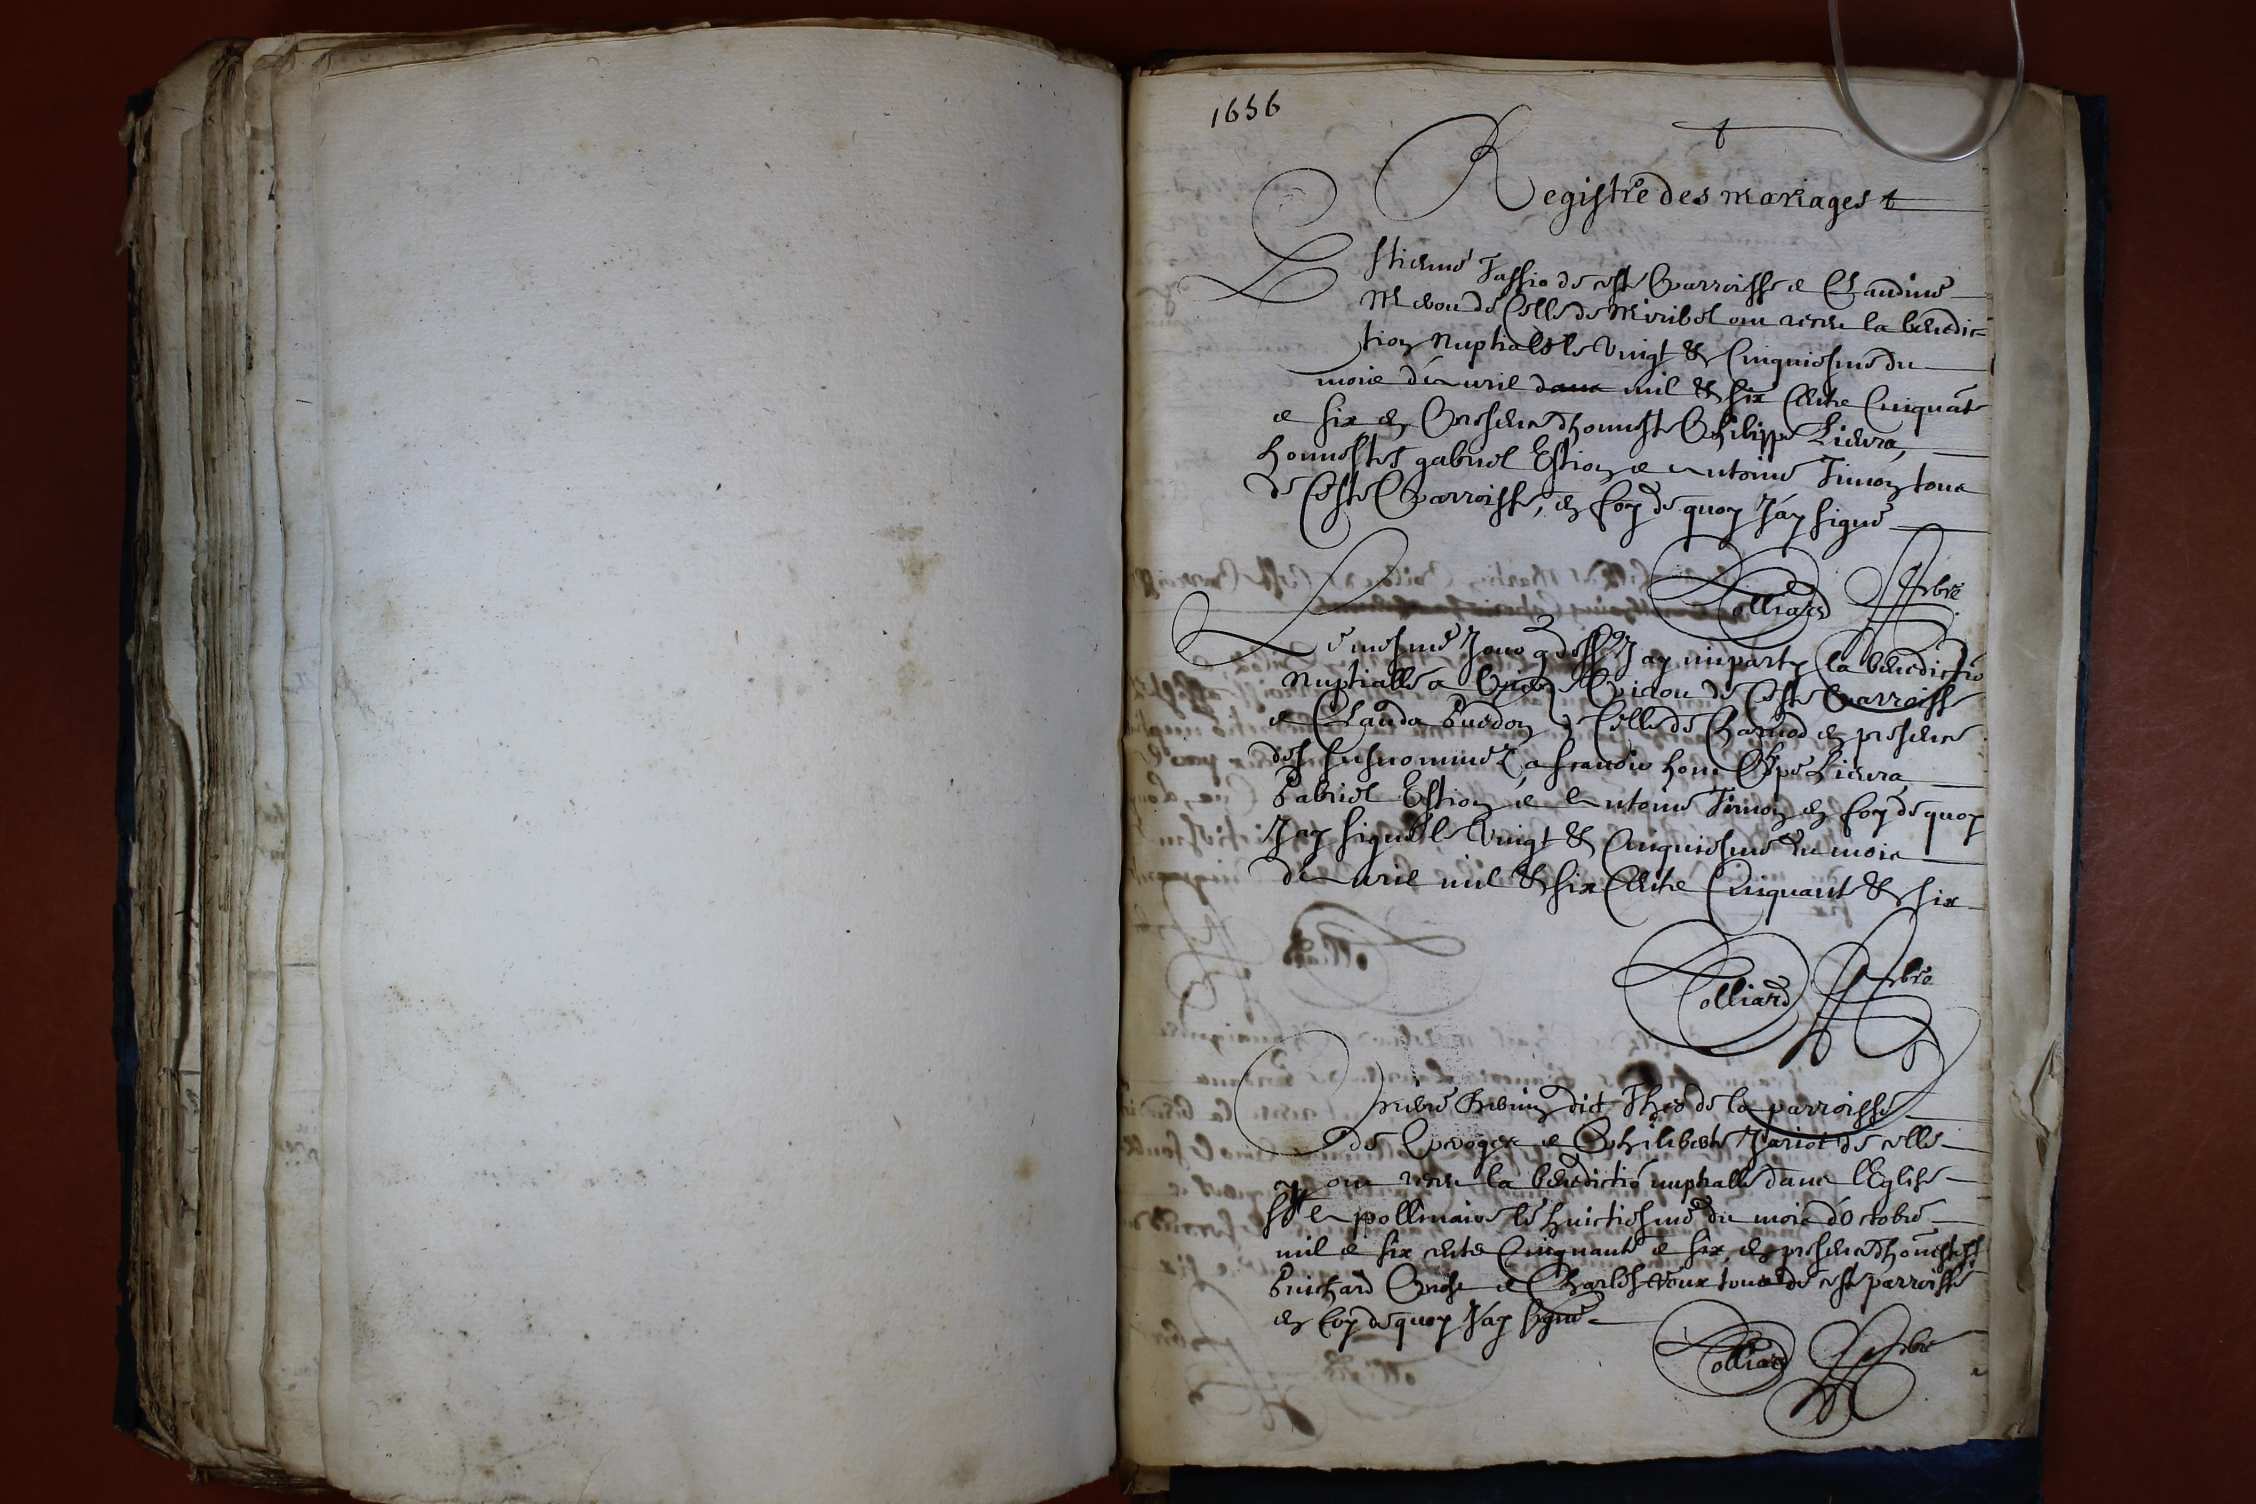 1656
Registre des mariages
Estienne Tassio de ceste Parroisse e Claudine
de Celle de Miribel ont receu la benedic=
tion Nuptiale le Vingt & Cinquiesme du
mois d'Avril mil & six Cents Cinquāt
e six en Presence d'honneste Philippe Lievra,
honnestes gabriel Estion e Antoine Timon tous
de Ceste Parroisse, en foy de quoy J'ay signé
Colliard Pbre
Le mesme Jour q dess J'ay imparty la benedictiō
Nuptialle a de Ceste Parroisse
e Clauda Guedon Celle de en presence
des susnommez a scavoir hon Phpe Lievra
Gabriel Estion e Antoine Timon en foy de quoy
J'ay signé le Vingt & Cinquiesme du mois
d'Avril mil & six Cents Cinquant & six
Colliard Pbre
Pierre dit de la parroisse
de e Philiberte Jariot de celle
ont receu la benedictiō nuptialle dans l'Eglise
St Apollinaire le huictiesme du mois d'Octobre
mil e six cents Cinquante e six, en presence d'hōnestes
Guichard e Charles tous de cest parroisse
en foy de quoy J'ay signé
Colliard Pbre